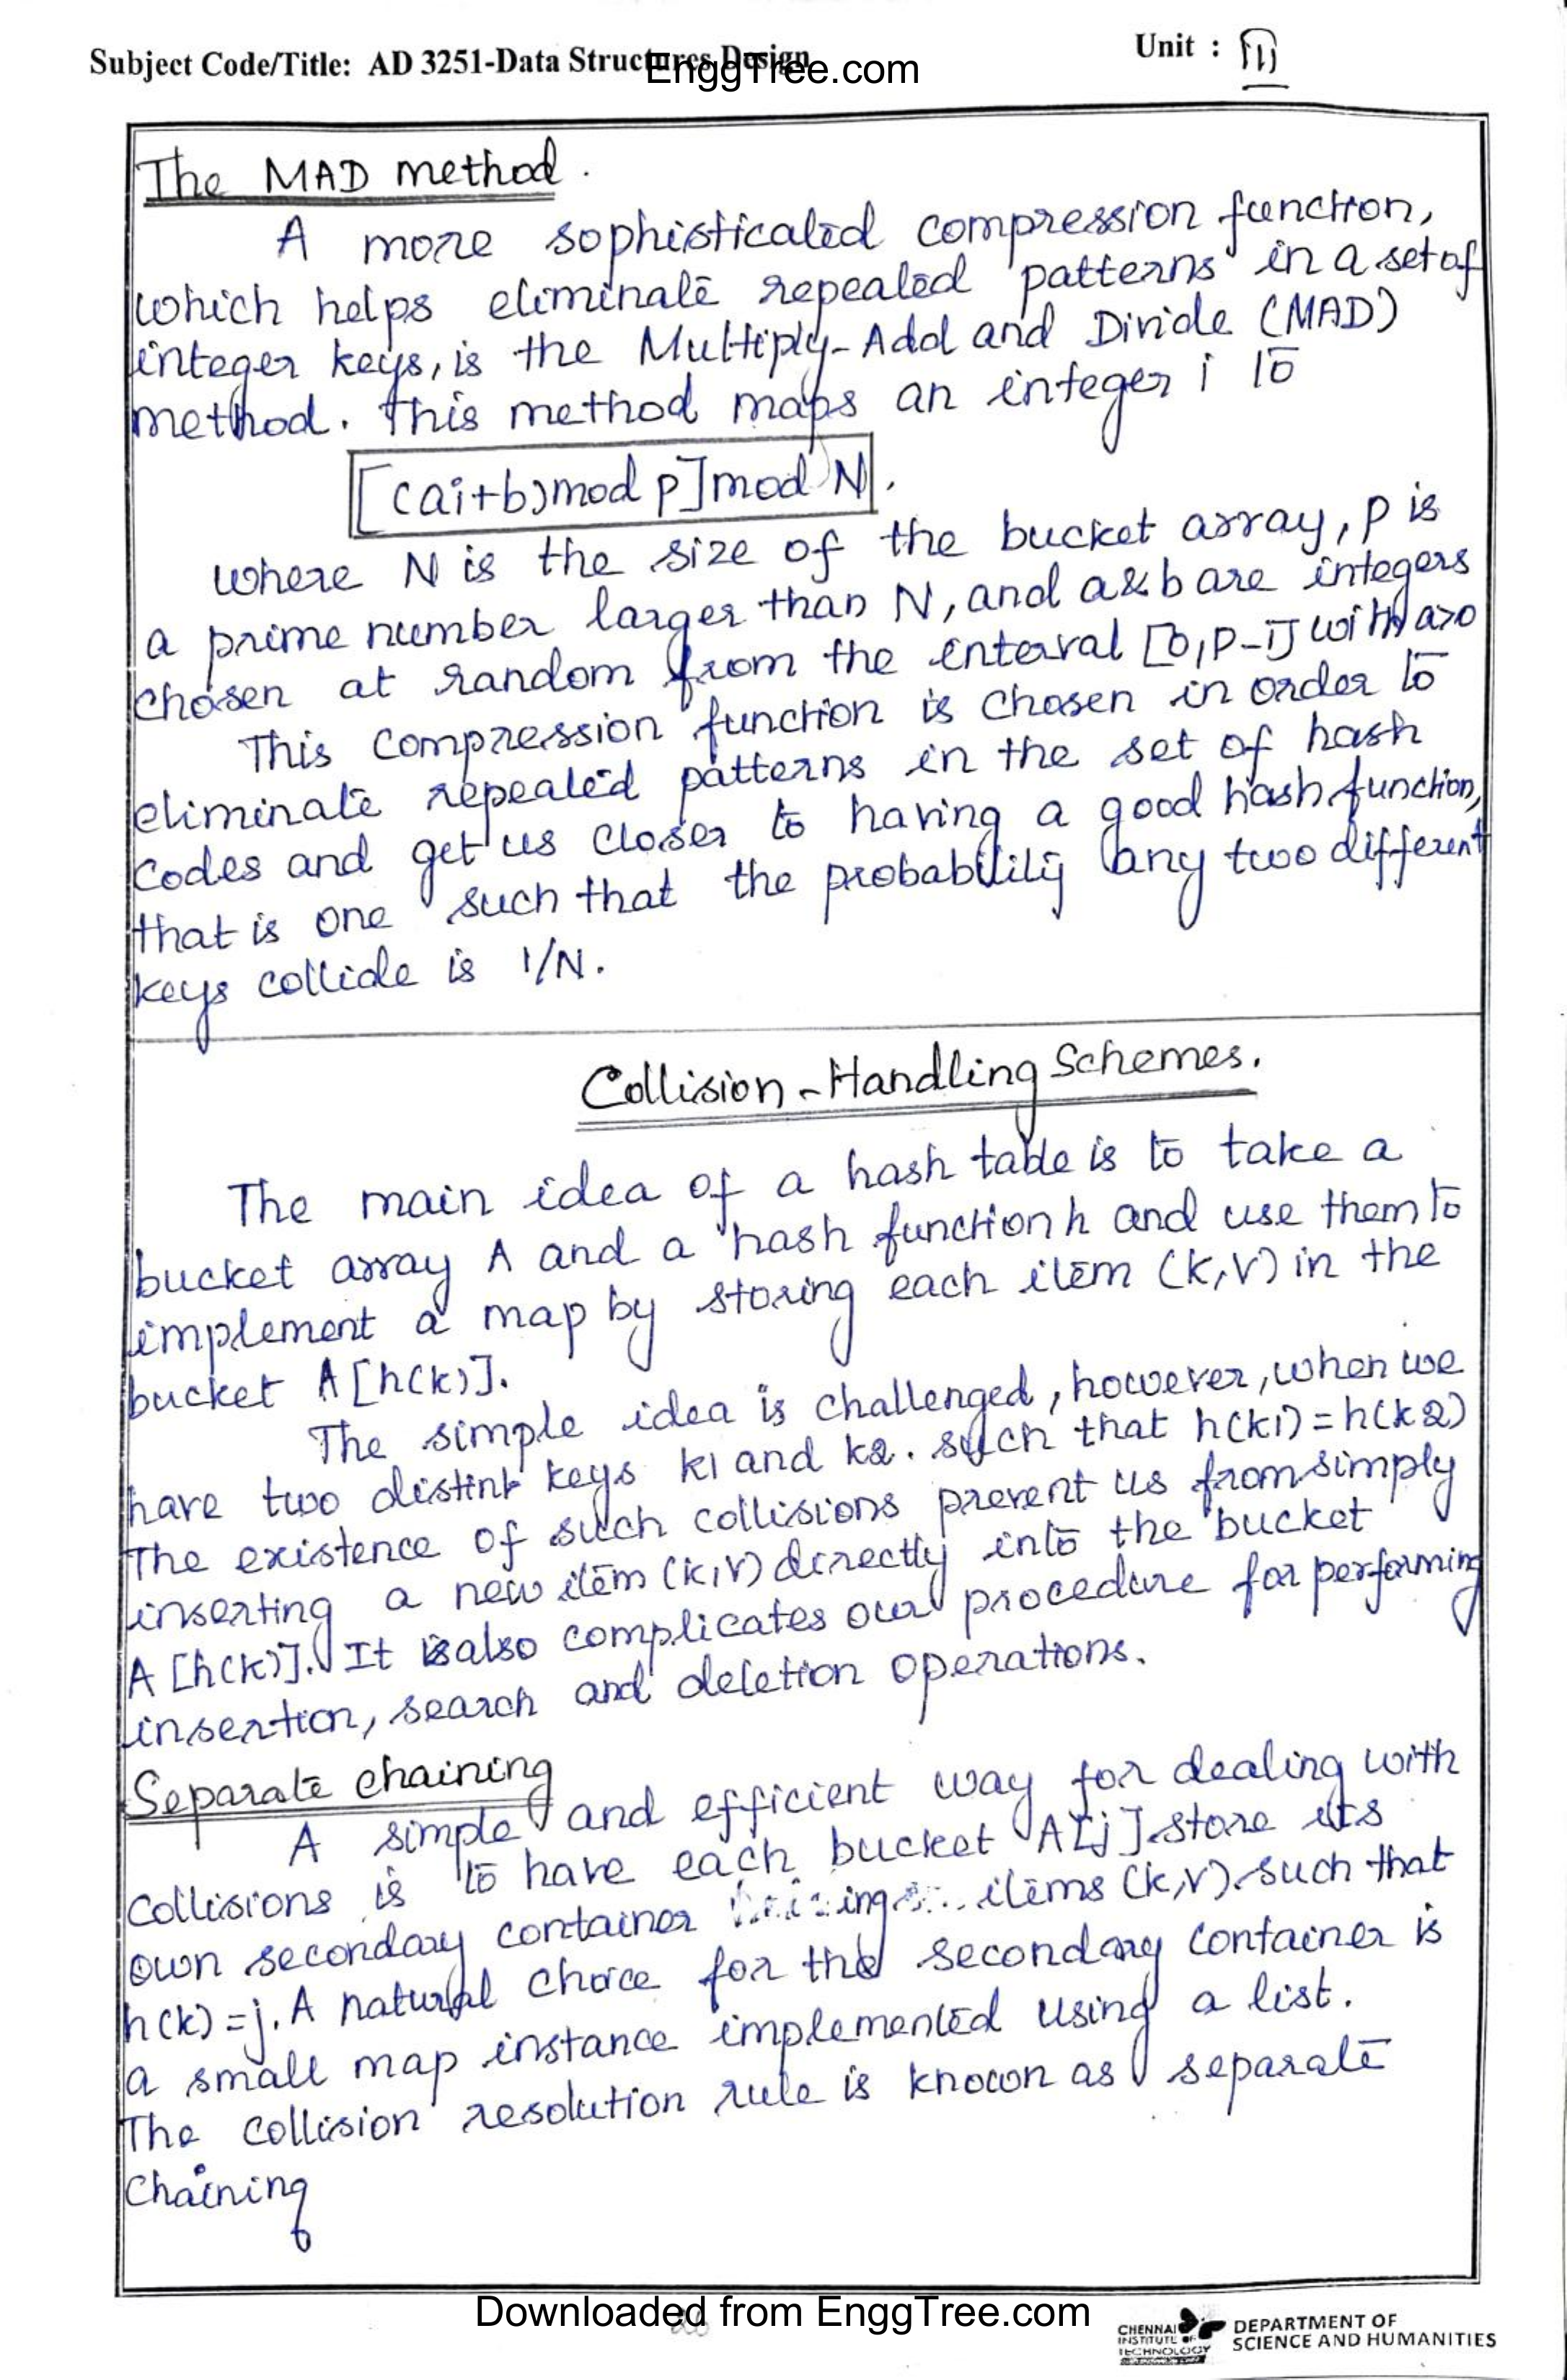 Subject Code/Title: AD 3251-Data Structures Design
EnggTree.com
Unit : III
The MAD method.
A more sophisticated compression function,
which helps eliminate repeated patterns in a set of
integer keys, is the Multiply-Add and Divide (MAD)
method. This method maps an integer i to
[(ai+b)mod p]mod N.
where N is the size of the bucket array, p is
a prime number larger than N, and a & b are integers
chosen at random from the interval [0,p-1] with a>0
This compression function is chosen in order to
eliminate repeated patterns in the set of hash
codes and get us closer to having a good hash function,
that is one such that the probability any two different
keys collide is 1/N.
Collision-Handling Schemes.
The main idea of a hash table is to take a
bucket array A and a hash function h and use them to
implement a map by storing each item (k,v) in the
bucket A[h(k)].
The simple idea is challenged, however, when we
have two distint keys k1 and k2. such that h(k1)=h(k2)
The existence of such collisions prevent us from simply
inserting a new item (k,v) directly into the bucket
A[h(k)]. It is also complicates our procedure for performing
insertion, search and deletion operations.
Separate chaining
A simple and efficient way for dealing with
collisions is to have each bucket A[j] store its
own secondary container items (k,v) such that
h(k)=j. A natural choice for the secondary container is
a small map instance implemented using a list.
The collision resolution rule is known as separate
Chaining
Downloaded from EnggTree.com
26
CHENNAI
INSTITUTE OF
TECHNOLOGY
DEPARTMENT OF
SCIENCE AND HUMANITIES